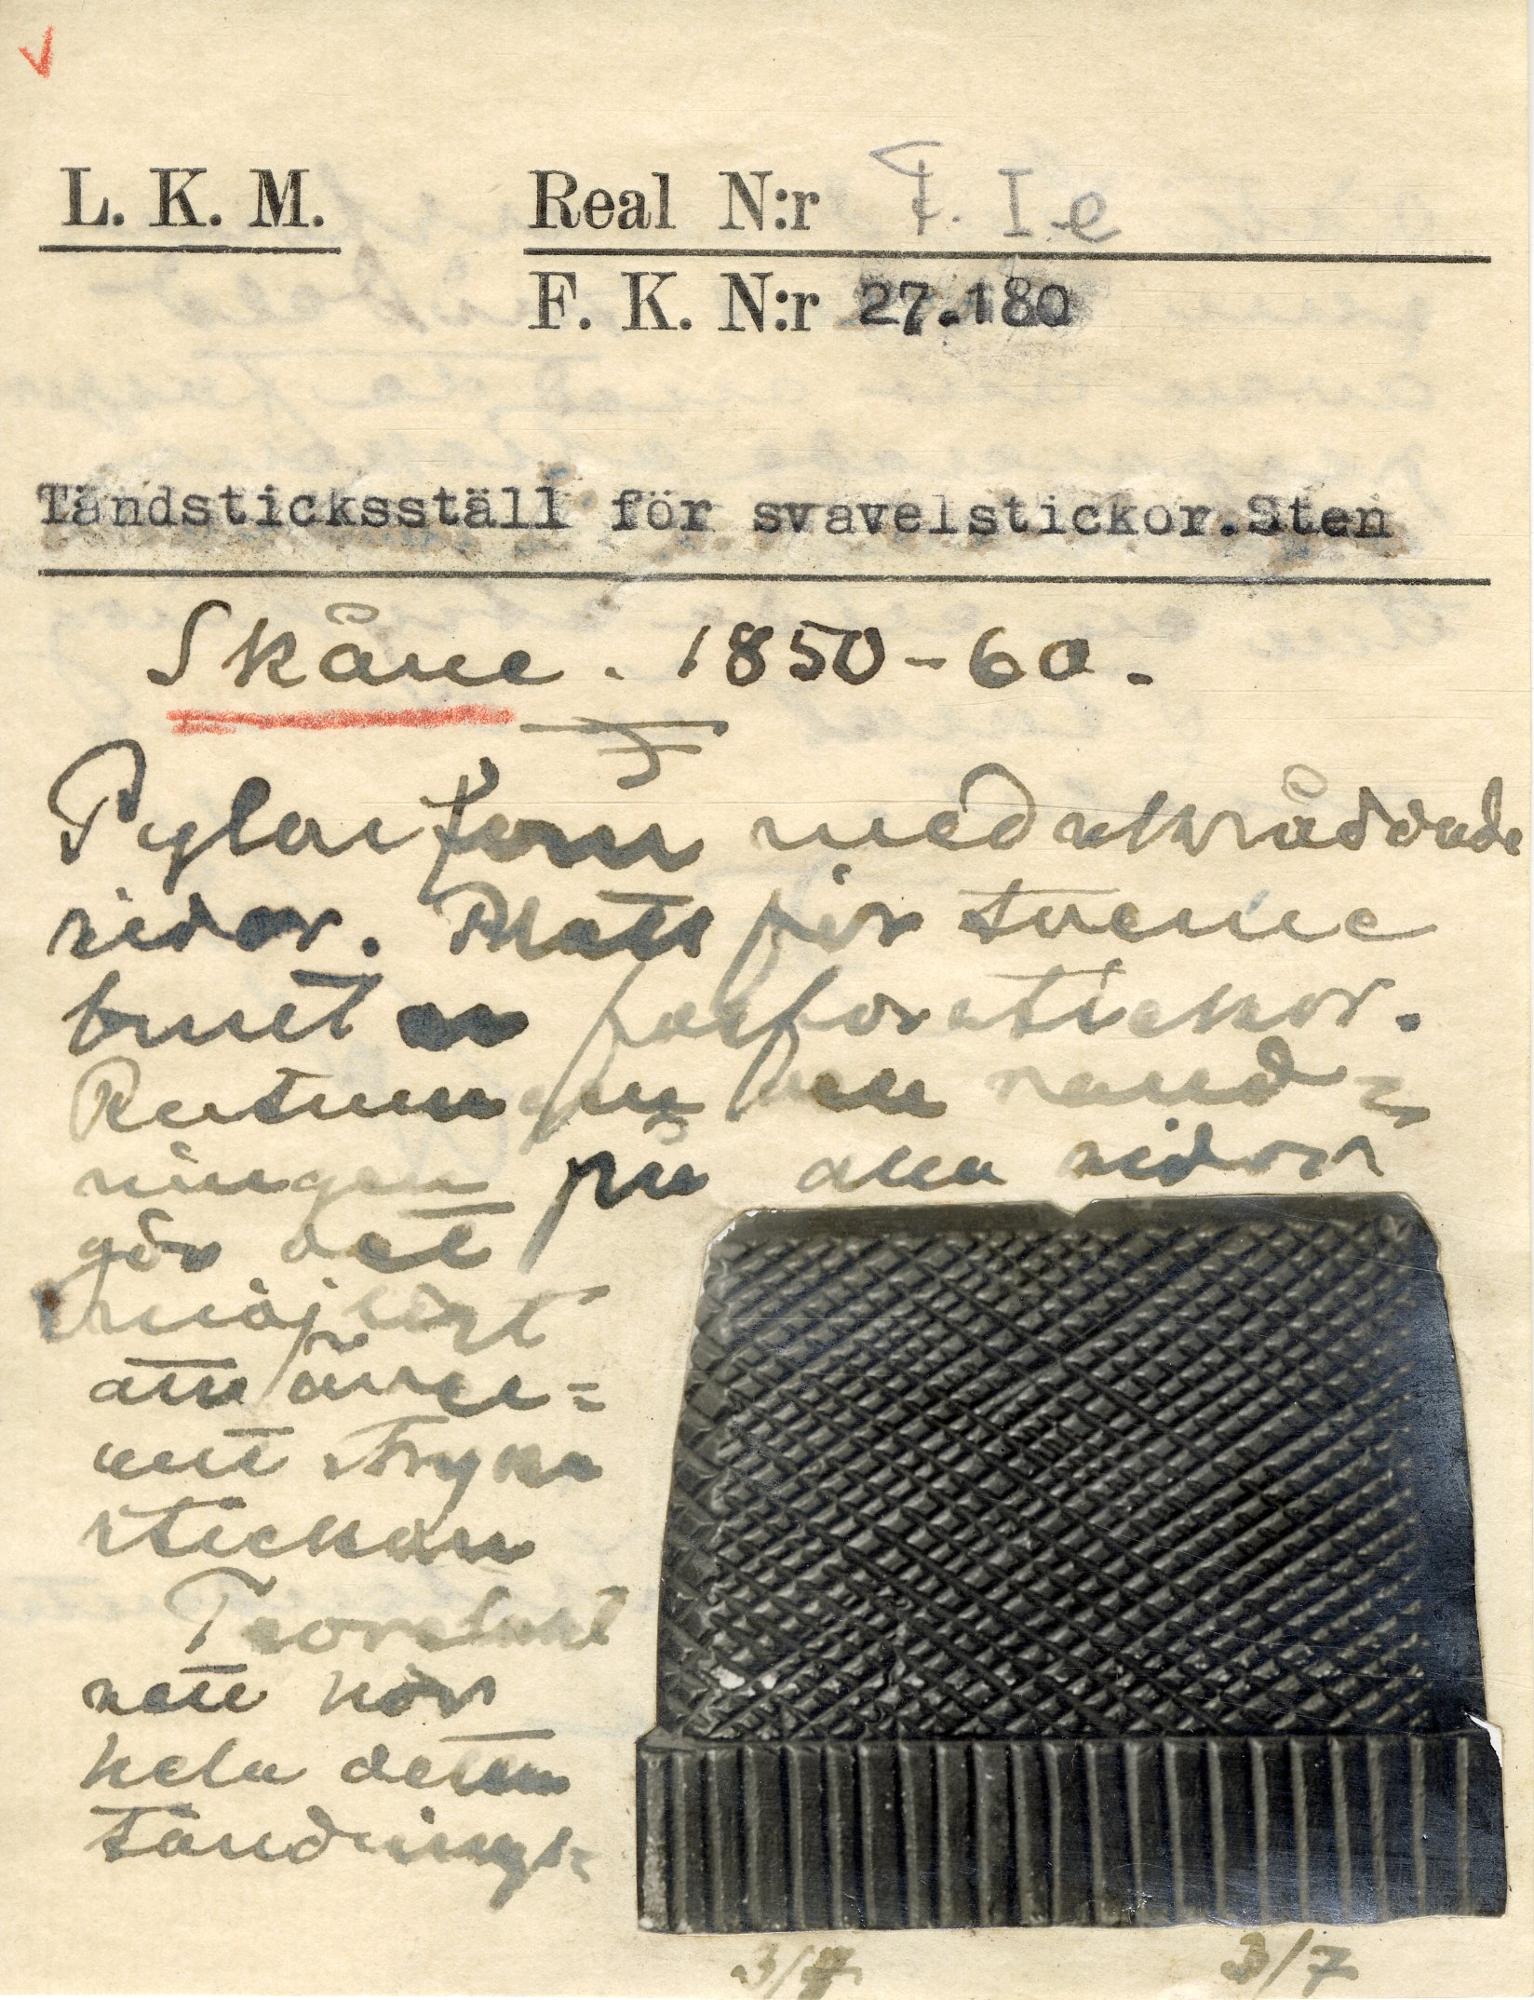 L. K. M. Real N:r F. I.e
F. K. N:r 27.180
Tändsticksställ för svavelstickor.Sten
Skåne. 1850-60.
Pylonform med uthråddade
sidor. Plats för tvenne
buntar fosforstickor.
Rutmönsen rand=
ningen på alla sidor
gör det
möjligt
att överallt stryka
stickan
sett hör
hela detta
tändnings=
3/7 3/7